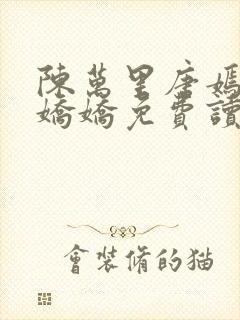 陳萬里唐嫣
嬌嬌免費讀
會裝脩的猫